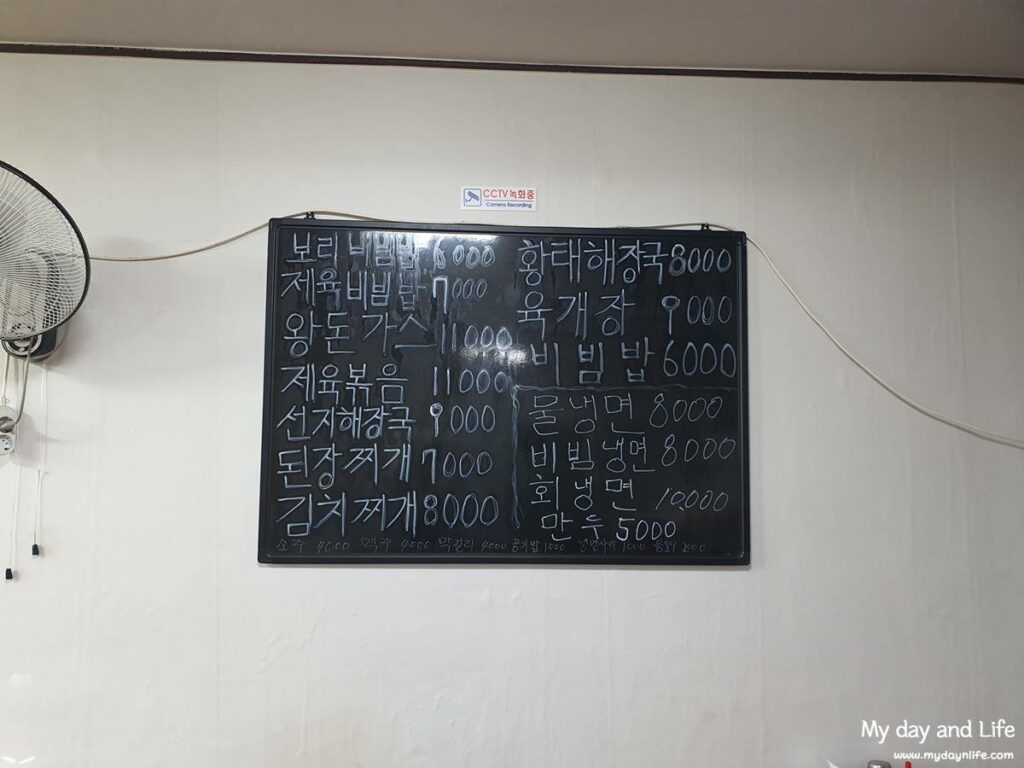 CCTV 녹화중
Camera Recording
보리비빔밥 6000
제육비빔밥 7000
왕돈가스 11000
제육볶음 11000
선지해장국 9000
된장찌개 7000
김치찌개 8000
황태해장국 8000
육개장 9000
비빔밥 6000
물냉면 8000
비빔냉면 8000
회냉면 10,000
만두 5000
소주 4000 맥주 4000 막걸리 4000 공기밥 1000 냉면사리 2000
My day and Life
www.mydaynlife.com